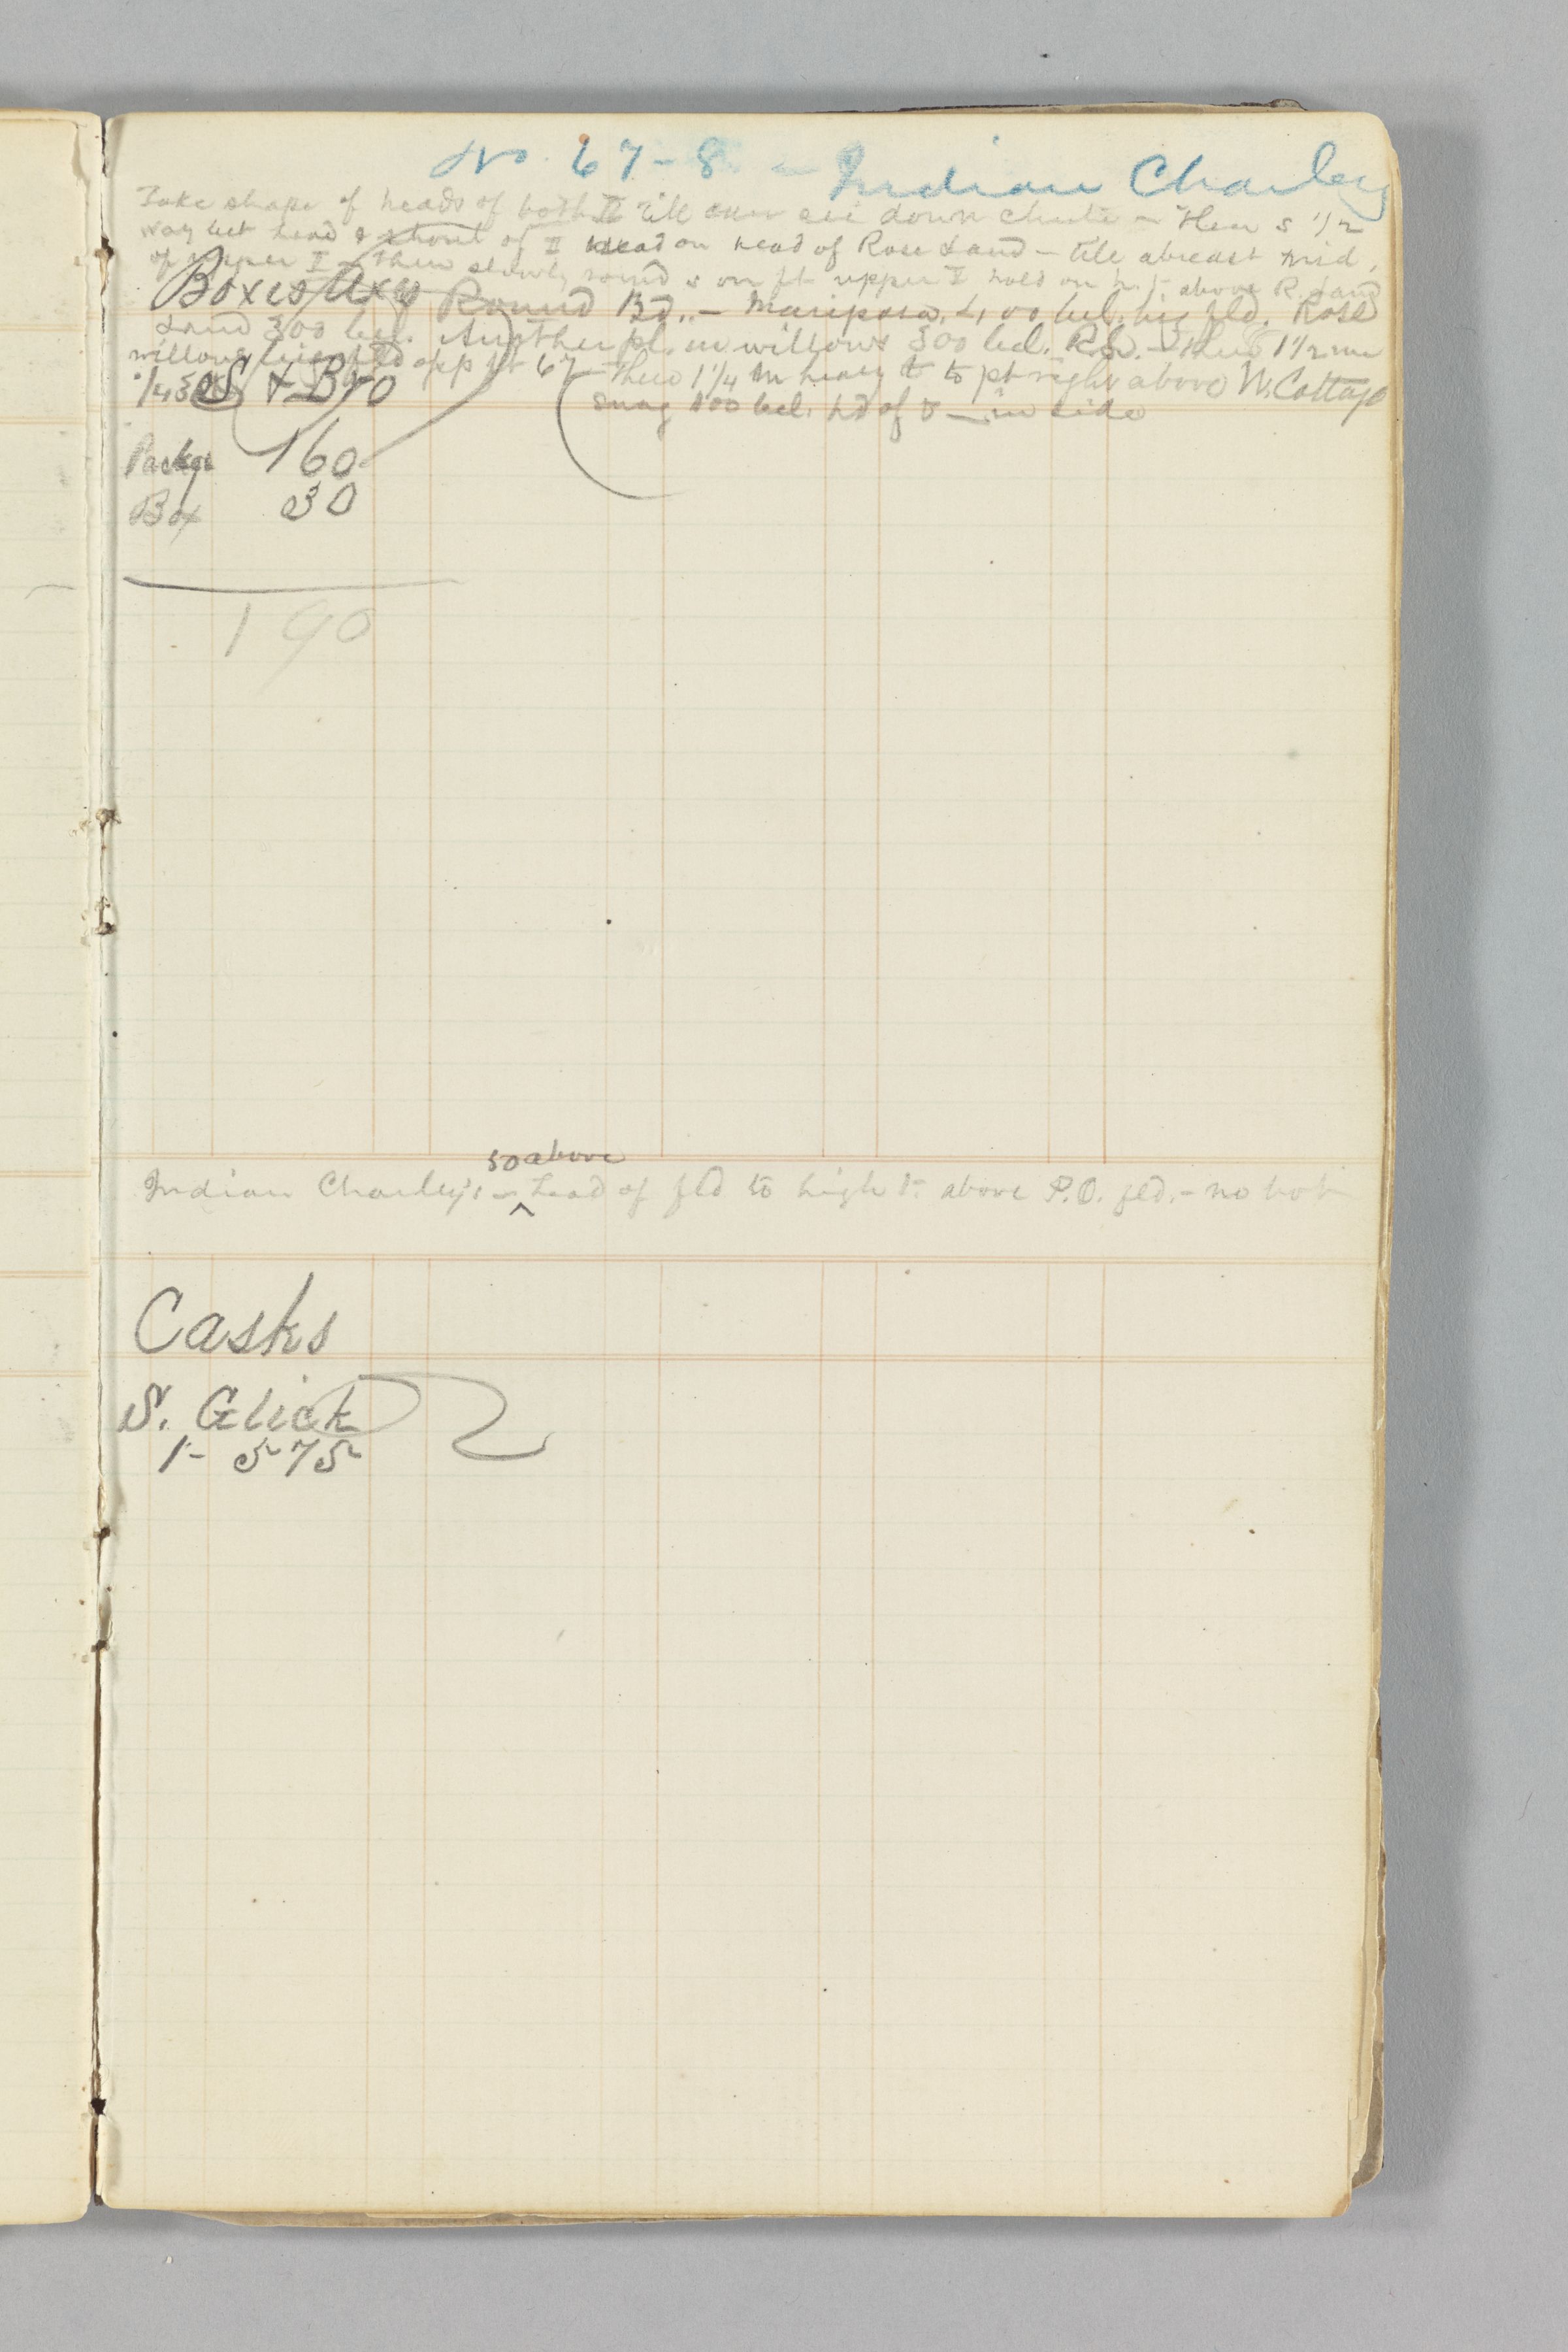 No. 67-8 - Indian Charley
Take shape of heads of both II till can see down chute - Then s 1/2
way bet head & of II head on head of Rose Land - till abreast mid.
of upper I - then slowly round s on ft upper I hold on above R. Land
Boxes Round Bd. - Mariposa, 400 bel. big fld. Rose
Land 300 bel. Another pl. in willows 300 bel. R.L. - Then 1 1/2 m
willows opp ft 67 - Then 1 1/4 m to pt right above W. Cottage
S & Bro
snag 100 bel. hd of in side
Packgs 160
Box 30
190
50 above
Indian Charley's - ^ head of fld to high above P.O. fld. - no bot
Casks
S. Glick
1- 575